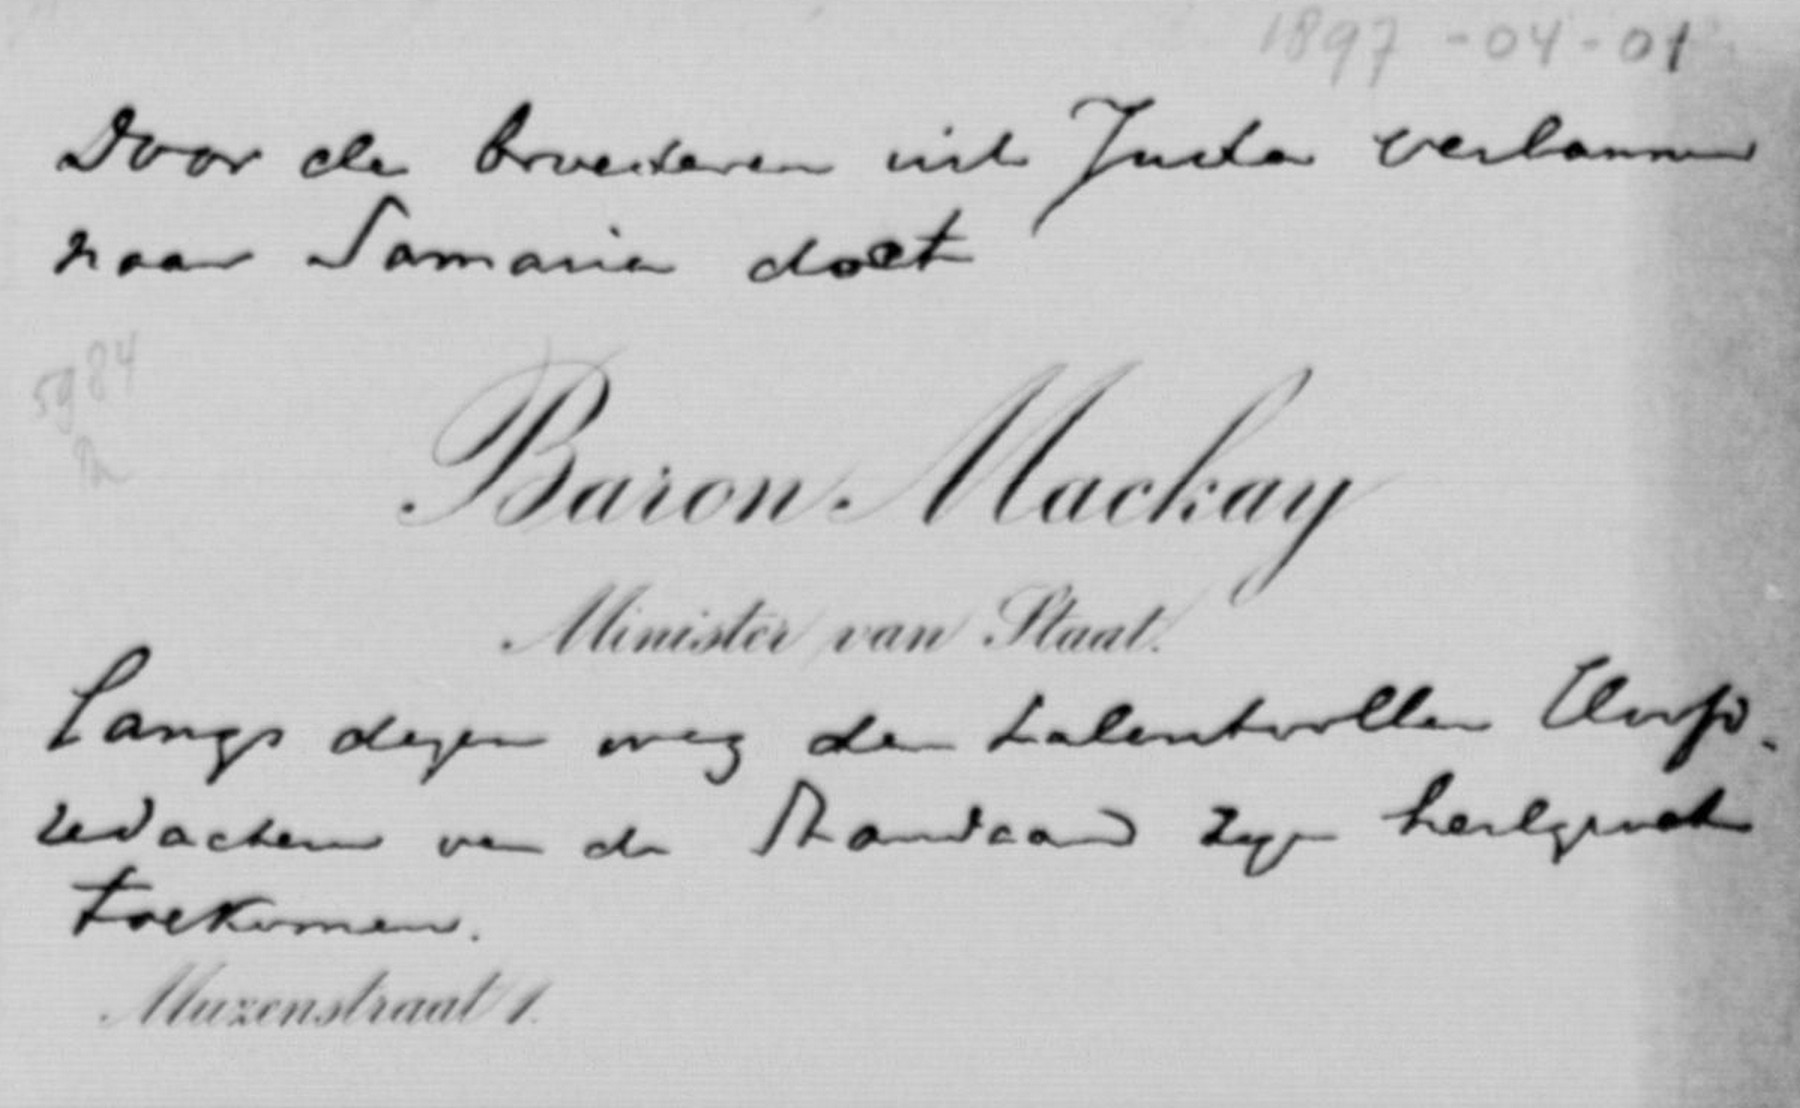 1897-04-01
Door de broederen uit Juda verbannen
naar Samaria doet
5984
Baron Mackay
Minister van Staat.
Langs dezen weg den talentvollen
redacteur van de Standaard zijn heilgroet
toekomen.
Muzenstraat 1.